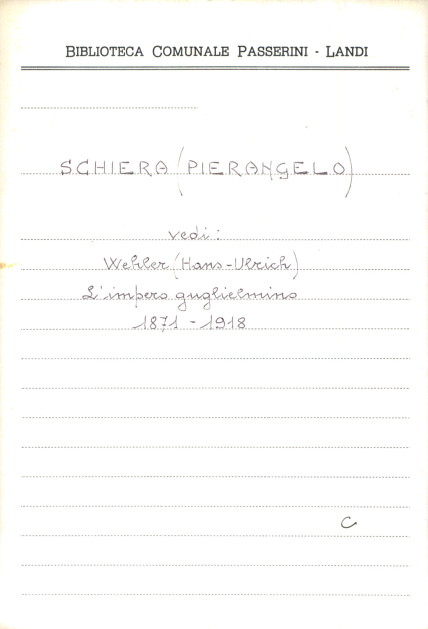 BIBLIOTECA COMUNALE PASSERINI - LANDI
SCHIERA (PIERANGELO)
vedi:
Wehler (Hans-Ulrich)
L'impero guglielmino
1871 - 1918
C